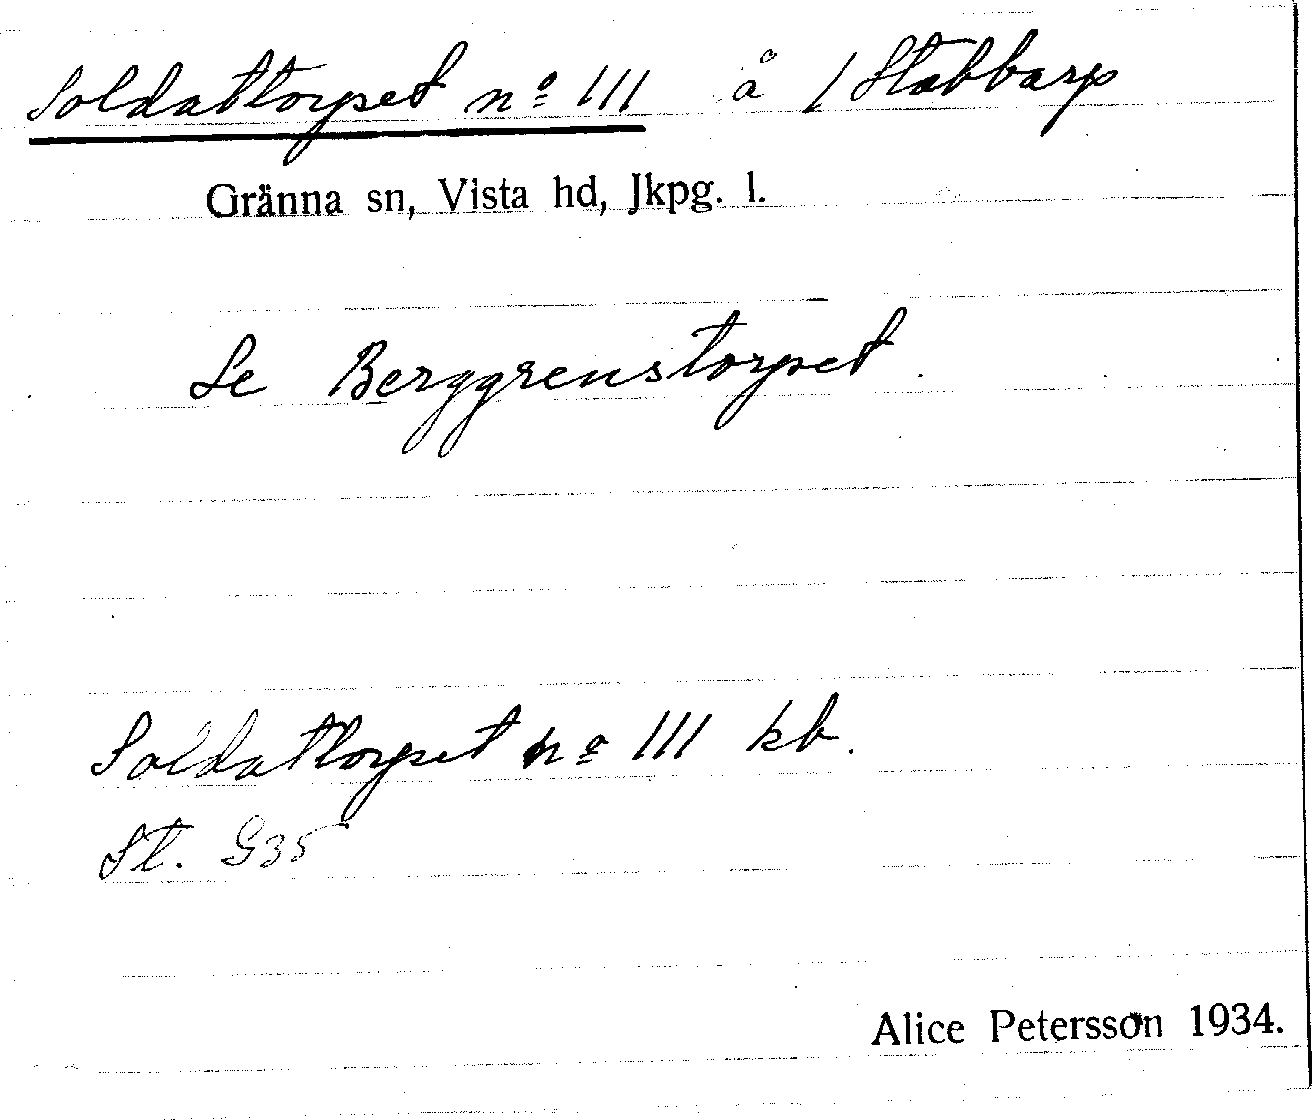 Soldattorpet nº 111 å / Stabbarp
Gränna sn, Vista hd, Jkpg. l.
Se Berggrenstorpet.
Soldattorpet nº 111 kb.
St. G35
Alice Petersson 1934.